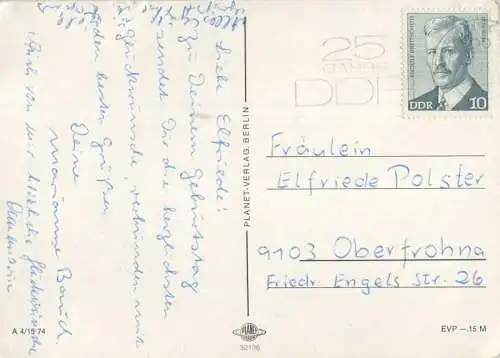 Liebe Elfriede!
Zu Deinem Geburtstag
sendet Dir die herzlichsten
Glückwünsche, verbunden mit
den besten Grüßen
Deine
Marianne
Auch von mir herzliche Glückwünsche
PLANET-VERLAG BERLIN
25
JAHRE
DDR
RUDOLF BREITSCHEID
DDR 10
Fräulein
Elfriede Polster
9103 Oberfrohna
Friedr. Engels Str. 26
A 4/15 74
PLANET
32136
EVP -.15 M